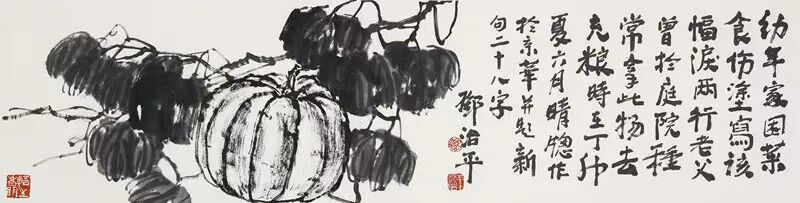 幼年家园菜
食伤塗寫該
幅淚兩行老父
曾於庭院種
常拿此物去
充粮時在丁卯
夏六月晴窓作
於京華并題新
句二十八字
鄧治平